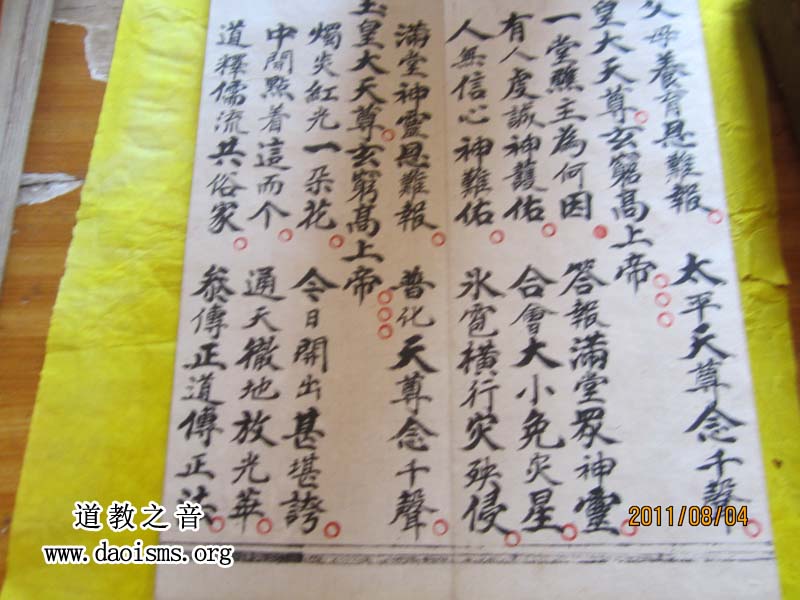 父母養育恩難報 太平天尊念千聲
皇大天尊玄窮高上帝
一堂醮主為何因 答報滿堂眾神靈
有人虔誠神護佑 合會大小免灾星
人無信心神難佑 氷雹橫行灾殃侵
滿堂神靈恩難報 普化天尊念千聲
玉皇大天尊玄窮高上帝
燭炎紅光一朵花 今日開出甚堪誇
中間點着這而个 通天徹地放光華
道釋儒流共俗家 叅傳正道傳正法
2011/08/04
道教之音
www.daoisms.org